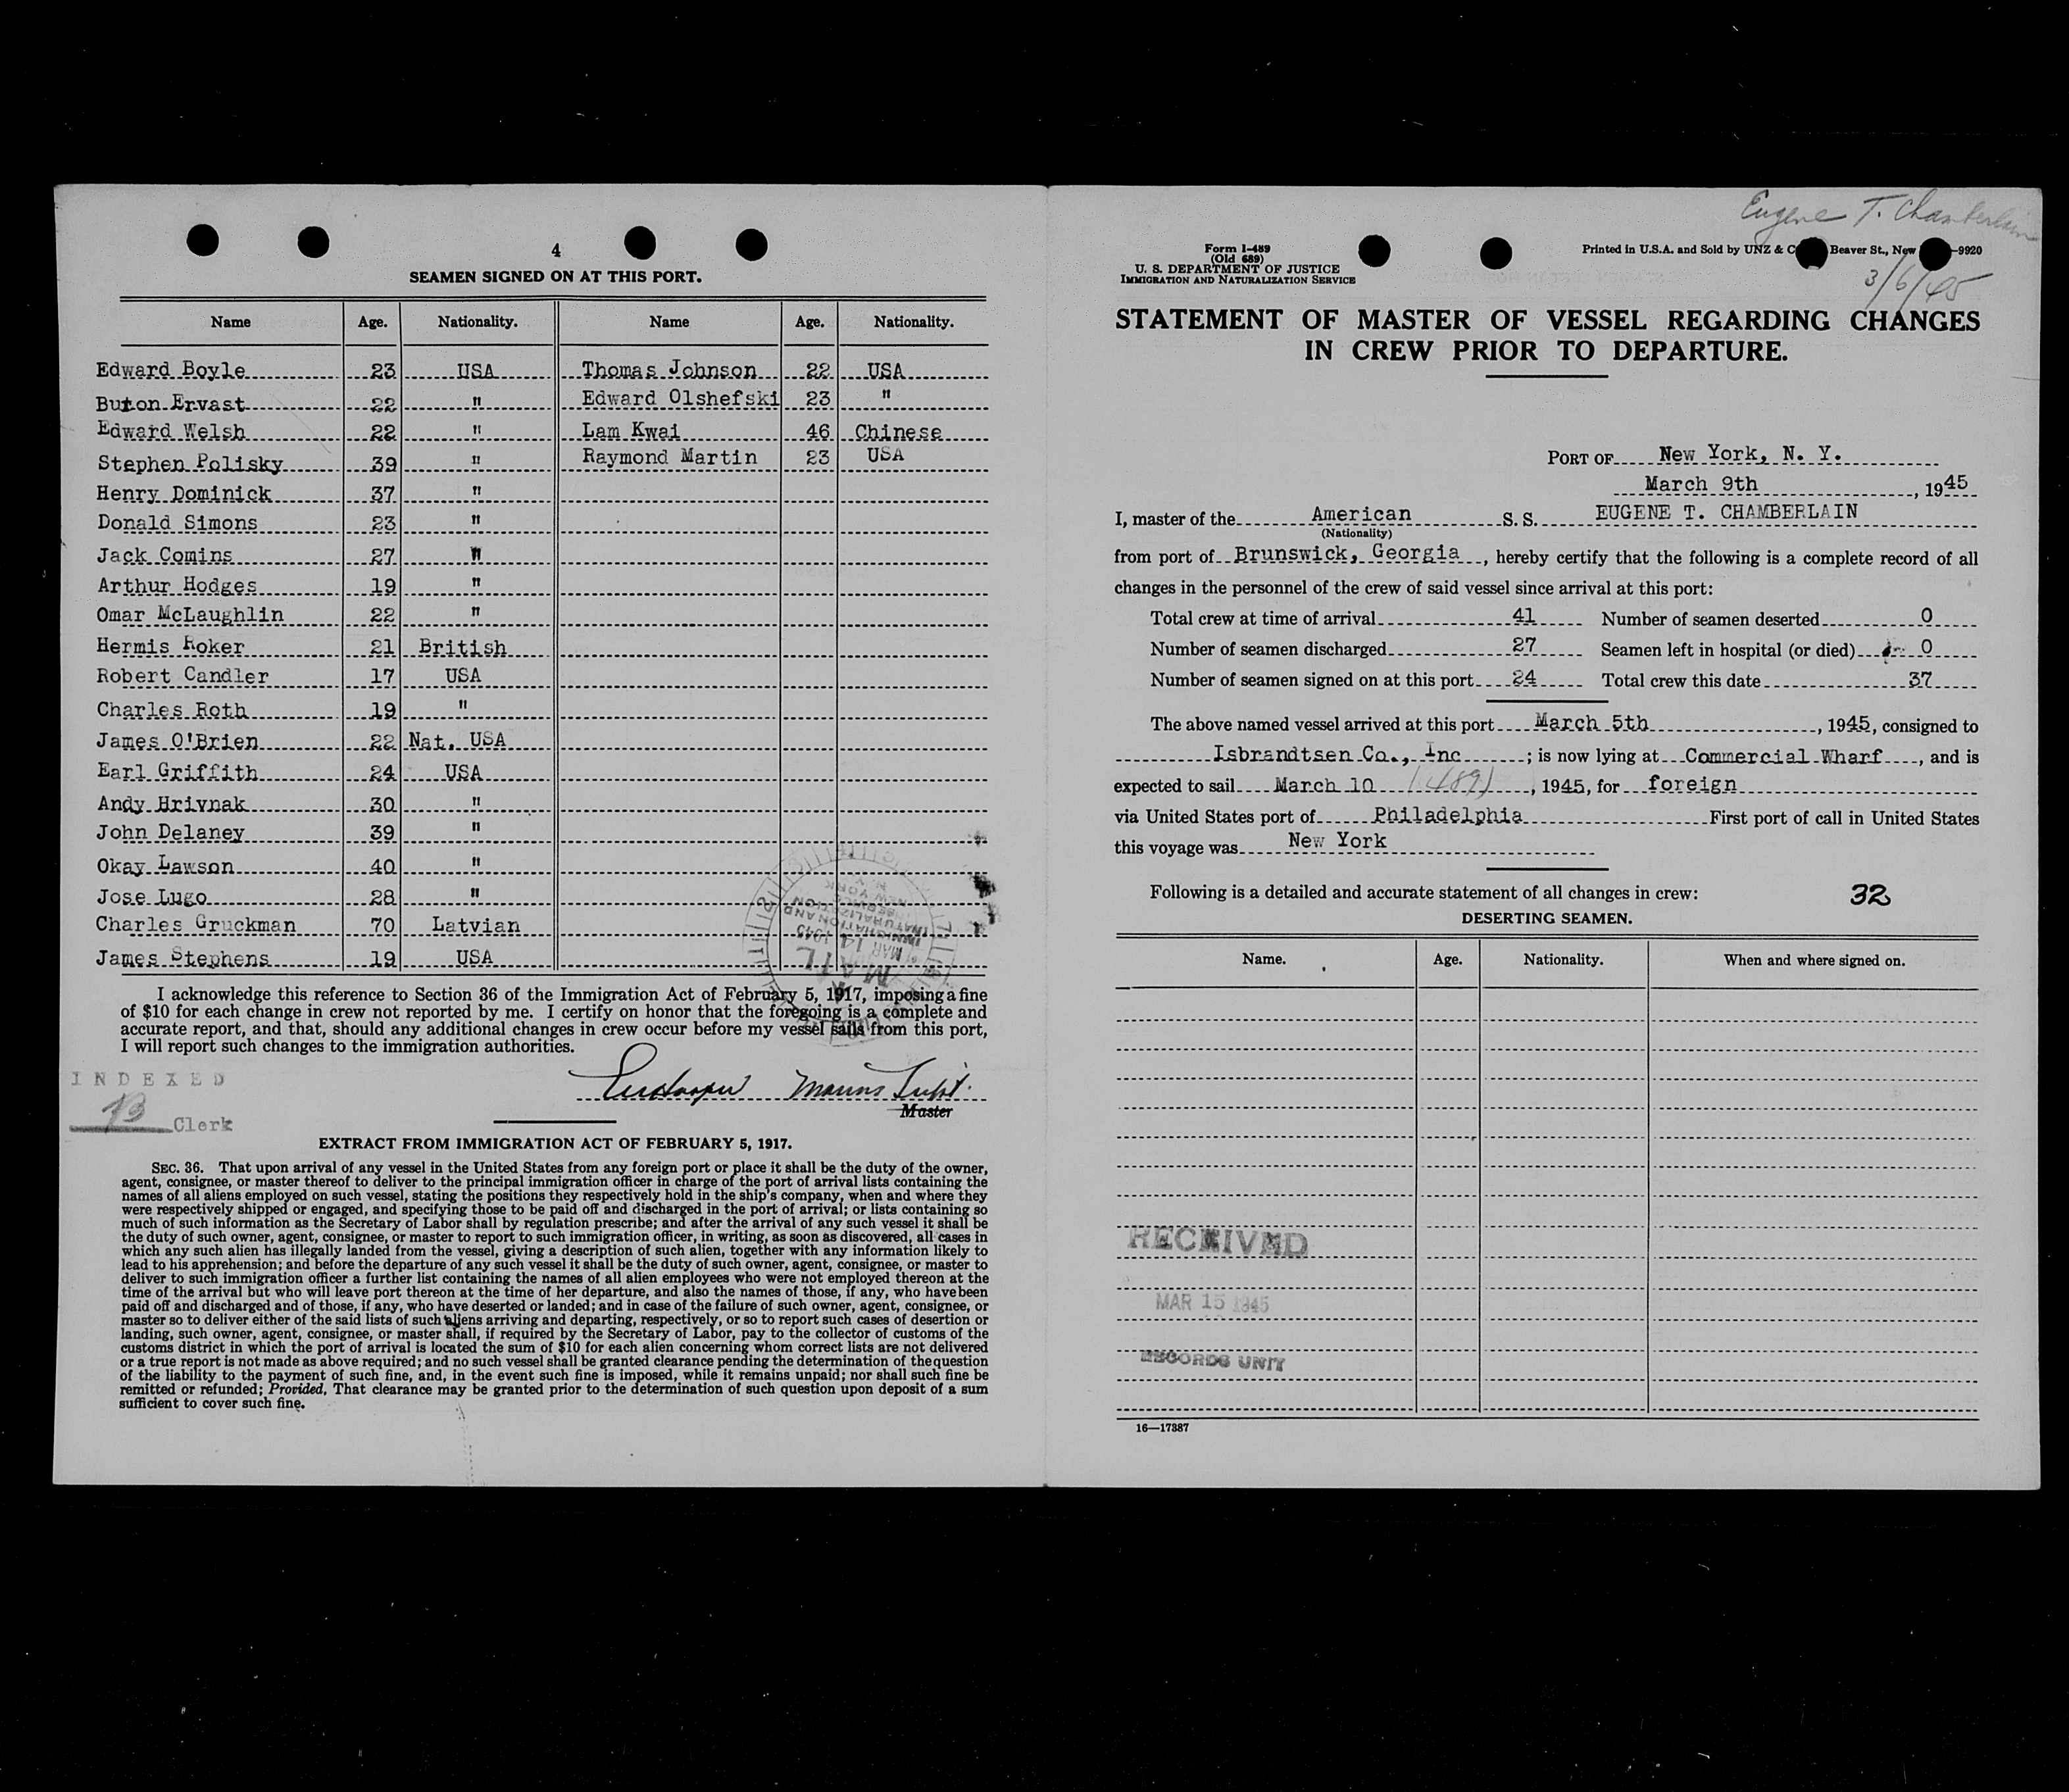 4
SEAMEN SIGNED ON AT THIS PORT.
Name Age. Nationality. Name Age. Nationality.
Edward Boyle 23 USA Thomas Johnson 22 USA
Buton Ervast 22 " Edward Olshefski 23 "
Edward Welsh 22 " Lam Kwai 46 Chinese
Stephen Polisky 39 " Raymond Martin 23 USA
Henry Dominick 37 "
Donald Simons 23 "
Jack Comins 27 "
Arthur Hodges 19 "
Omar McLaughlin 22 "
Hermis Roker 21 British
Robert Candler 17 USA
Charles Roth 19 "
James O'Brien 22 Nat. USA
Earl Griffith 24 USA
Andy Hrivnak 30 "
John Delaney 39 "
Okay Lawson 40 "
Jose Lugo 28 "
Charles Gruckman 70 Latvian
James Stephens 19 USA
IMMIGRATION AND
NATURALIZATION
SERVICE
NEW YORK
N. Y.
MAR 14 1945
MAIL
I acknowledge this reference to Section 36 of the Immigration Act of February 5, 1917, imposing a fine
of $10 for each change in crew not reported by me. I certify on honor that the foregoing is a complete and
accurate report, and that, should any additional changes in crew occur before my vessel sails from this port,
I will report such changes to the immigration authorities.
INDEXED
Clerk
Master
EXTRACT FROM IMMIGRATION ACT OF FEBRUARY 5, 1917.
SEC. 36. That upon arrival of any vessel in the United States from any foreign port or place it shall be the duty of the owner,
agent, consignee, or master thereof to deliver to the principal immigration officer in charge of the port of arrival lists containing the
names of all aliens employed on such vessel, stating the positions they respectively hold in the ship's company, when and where they
were respectively shipped or engaged, and specifying those to be paid off and discharged in the port of arrival; or lists containing so
much of such information as the Secretary of Labor shall by regulation prescribe; and after the arrival of any such vessel it shall be
the duty of such owner, agent, consignee, or master to report to such immigration officer, in writing, as soon as discovered, all cases in
which any such alien has illegally landed from the vessel, giving a description of such alien, together with any information likely to
lead to his apprehension; and before the departure of any such vessel it shall be the duty of such owner, agent, consignee, or master to
deliver to such immigration officer a further list containing the names of all alien employees who were not employed thereon at the
time of the arrival but who will leave port thereon at the time of her departure, and also the names of those, if any, who have been
paid off and discharged and of those, if any, who have deserted or landed; and in case of the failure of such owner, agent, consignee, or
master so to deliver either of the said lists of such aliens arriving and departing, respectively, or so to report such cases of desertion or
landing, such owner, agent, consignee, or master shall, if required by the Secretary of Labor, pay to the collector of customs of the
customs district in which the port of arrival is located the sum of $10 for each alien concerning whom correct lists are not delivered
or a true report is not made as above required; and no such vessel shall be granted clearance pending the determination of the question
of the liability to the payment of such fine, and, in the event such fine is imposed, while it remains unpaid; nor shall such fine be
remitted or refunded; Provided, That clearance may be granted prior to the determination of such question upon deposit of a sum
sufficient to cover such fine.
Eugene T. Chamberlain
3/6/45
Form I-489
(Old 689)
U. S. DEPARTMENT OF JUSTICE
IMMIGRATION AND NATURALIZATION SERVICE
Printed in U.S.A. and Sold by UNZ & C Beaver St., New —9920
STATEMENT OF MASTER OF VESSEL REGARDING CHANGES
IN CREW PRIOR TO DEPARTURE.
PORT OF New York, N. Y.
March 9th, 1945
I, master of the American S. S. EUGENE T. CHAMBERLAIN
(Nationality)
from port of Brunswick, Georgia, hereby certify that the following is a complete record of all
changes in the personnel of the crew of said vessel since arrival at this port:
Total crew at time of arrival 41 Number of seamen deserted 0
Number of seamen discharged 27 Seamen left in hospital (or died) 0
Number of seamen signed on at this port 24 Total crew this date 37
The above named vessel arrived at this port March 5th, 1945, consigned to
Isbrandtsen Co., Inc; is now lying at Commercial Wharf, and is
expected to sail March 10 (489), 1945, for foreign
via United States port of Philadelphia First port of call in United States
this voyage was New York
Following is a detailed and accurate statement of all changes in crew: 32
DESERTING SEAMEN.
Name. Age. Nationality. When and where signed on.
RECEIVED
MAR 15 1945
RECORDS UNIT
16—17387